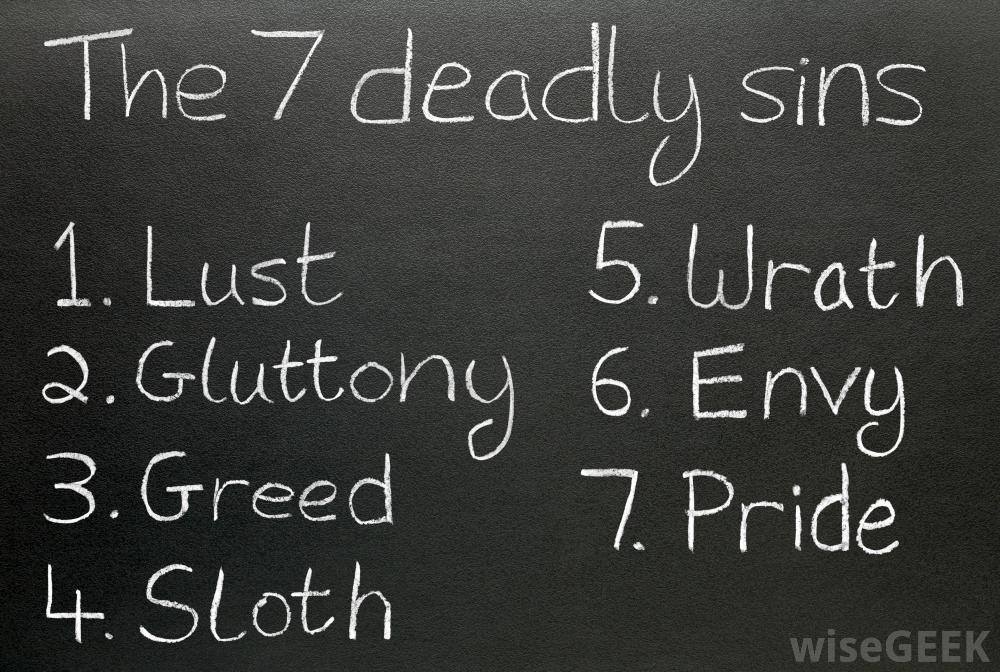 The 7 deadly sins
1. Lust
2. Gluttony
3. Greed
4. Sloth
5. Wrath
6. Envy
7. Pride
wiseGEEK